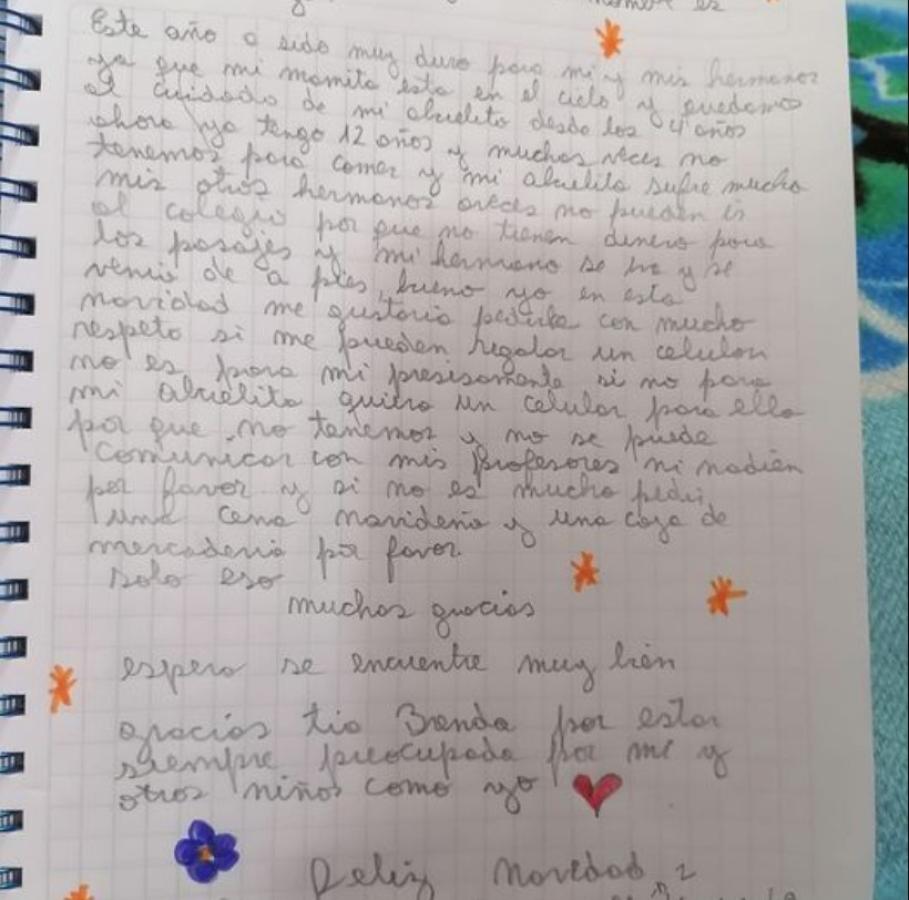 es
Este año a sido muy duro para mi y mis hermanos
ya que mi mamita esta en el cielo y quedamos
al cuidado de mi abuelita desde los 4 años
ahora yo tengo 12 años y muchas veces no
tenemos para comer y mi abuelita sufre mucho
mis otros hermanos aveces no pueden ir
al colegio por que no tienen dinero para
los pasajes y mi hermano se va y se
viene de a pies, bueno yo en esta
navidad me gustaria pedirle con mucho
respeto si me pueden regalar un celular
no es para mi presisamente si no para
mi abuelita quiero un celular para ella
por que no tenemos y no se puede
comunicar con mis profesores ni nadien
por favor y si no es mucho pedir,
una cena navideña y una caja de
mercaderia por favor.
solo eso
muchas gracias
espero se encuentre muy bien
gracias tia Brenda por estar
siempre preocupada por mi y
otros niños como yo
Feliz navidad